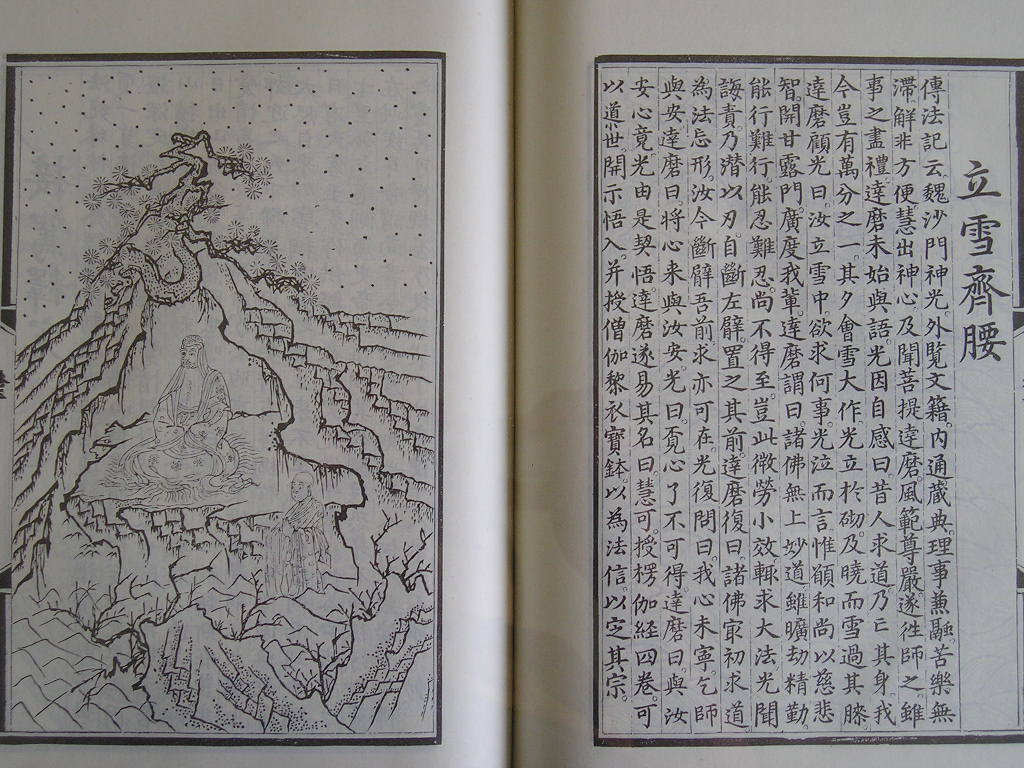 立雪齊腰
傳法記云。魏沙門神光。外覽文籍。內通藏典。理事兼融。苦樂無
滯。解非方便。慧出神心。及聞菩提達磨。風範尊嚴。遂徃師之。雖
事之盡禮。達磨未始與語。光因自感曰。昔人求道。乃亡其身。我
今豈有萬分之一。其夕會雪大作。光立於砌。及曉而雪過其膝。
達磨顧光曰。汝立雪中。欲求何事。光泣而言。惟願和尚以慈悲
智。開甘露門。廣度我輩。達磨謂曰。諸佛無上妙道。雖曠劫精勤。
能行難行。能忍難忍。尚不得至。豈此微勞小效。輙求大法。光聞
誨責。乃潛以刃自斷左臂。置之其前。達磨復曰。諸佛㝡初求道。
為法忘形。汝今斷臂吾前。求亦可在。光復問曰。我心未寧。乞師
與安。達磨曰。將心來與汝安。光曰。覓心了不可得。達磨曰。與汝
安心竟。光由是契悟。達磨遂易其名曰慧可。授楞伽經四卷。可
以道世。開示悟入。并授僧伽黎衣寶鉢。以為法信。以定其宗。